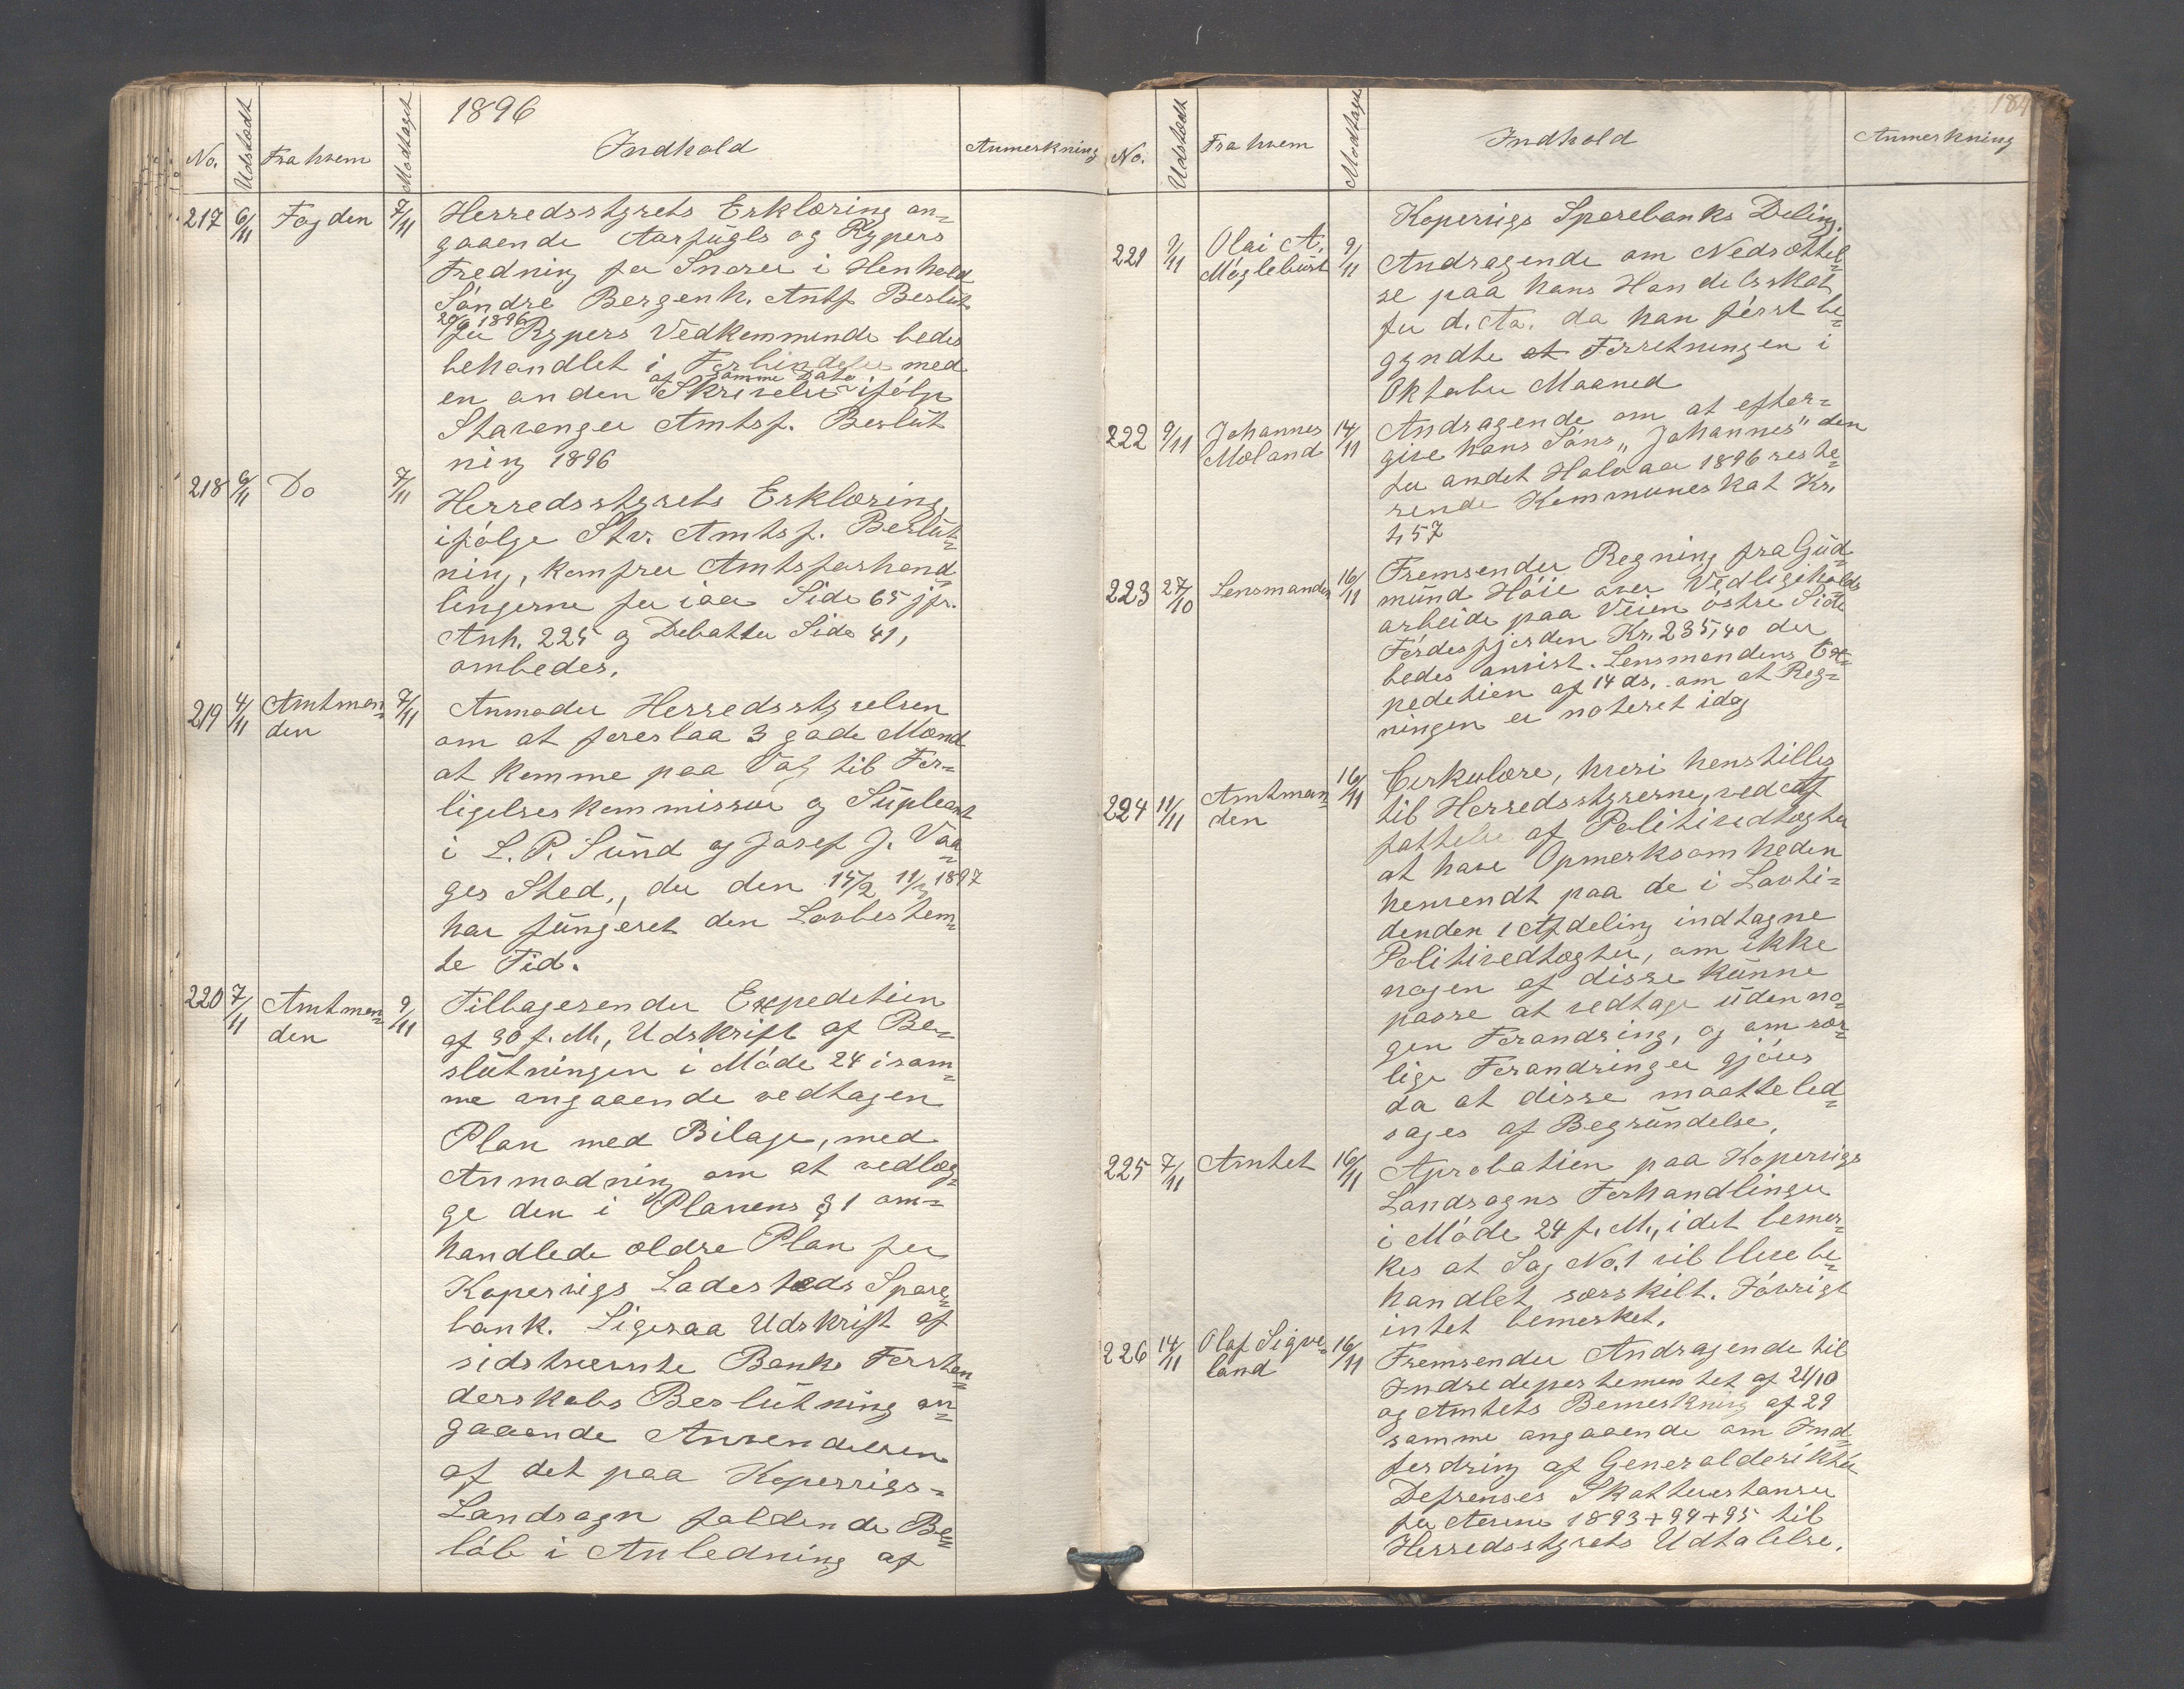 1896
No. Udstedt Fra hvem Modtaget Indhold Anmerkning
217 6/11 Fogden 7/11 Herredsstyrets Erklæring an-
gaaende Aarfügls og Rypers
Fredning for Snarer i Henhold
Søndre Bergenh. Amtsf. Beslüt.
20/6 1896
for Rypers Vedkommende bedes
behandlet i Forbindelse med
en anden af samme Dato Skrivelse ifølge
Stavanger Amtsf. Beslüt
ning 1896
218 6/11 Do 7/11 Herredsstyrets Erklæring,
ifølge Stv. Amtsf. Beslüt-
ning, komfrer Amtsforhand-
lingerne for iaar Side 65 jfr.
Anh. 225 og Debatter Side 41,
ombedes.
219 4/11 Amtman- 7/11 Anmoder Herredsstyrelsen
den om at foreslaa 3 gode Mænd
at komme paa Valg til For-
ligelseskommissær og Süpleant
i L. P. Sünd og Josef J. Vaa-
ges Sted, der den 15/2 11/3 1897
har füngeret den Lovbestem-
te Tid.
220 7/11 Amtman- 9/11 Tilbagesender Expedition
den af 30 f. M., Udskrift af Be-
slütningen i Møde 24 i sam-
me angaaende vedtagen
Plan med Bilage, med
Anmodning om at vedlæg-
ge den i Planens § 1 om-
handlede ældre Plan for
Kopervigs Ladesteds Spare-
bank. Ligesaa Udskrift af
sidstnævnte Banks Forstan-
derskabs Beslütning an-
gaaende Anvendelsen
af det paa Kopervigs-
Landsogn faldende Be-
løb i Anledning af
184
No. Udstedt Fra hvem Modtaget Indhold Anmerkning
Kopervigs Sparebanks Deling.
221 9/11 Olai A. 9/11 Andragende om Nedsættel-
Møglebüst se paa hans Handelsskat
for d. Aa. da han først be-
gyndte at Forretningen i
Oktober Maaned
222 9/11 Johannes 14/11 Andragende om at efter-
Mæland give hans Søns "Johannes" den
for andet Halvaar 1896 reste-
rende Kommuneskat Kr.
1,57
223 27/10 Lensmanden 16/11 Fremsender Regning fra Güd-
münd Høie over Vedligeholds
arbeide paa Veien østre Side
Førdesfjorden Kr. 235,40 der
bedes anvist. Lensmandens Ex-
pedition af 14 ds. om at Reg-
ningen er noteret idag
224 11/11 Amtman- 16/11 Cirkulære, hvori henstilles
den til Herredsstyrerne, ved Af
fattelse af Politivedtægter
at have Opmerksomheden
henvendt paa de i Lovti-
denden 1 Afdeling indtagne
Politivedtægter, om ikke
nogen af disse künne
passe at vedtage üden no-
gen Forandring, og om sær-
lige Forandringer gjøres
da at disse maatte led-
sages af Begründelse.
225 7/11 Amtet 16/11 Aprobation paa Kopervigs
Landsogns Forhandlinger
i Møde 24 f. M., idet bemer-
kes at Sag No. 1 vil blive be-
handlet særskilt. Iøvrigt
intet bemerket.
226 14/11 Olaf Sigve- 16/11 Fremsender Andragende til
land Indredepartementet af 21/10
og Amtets Bemerkning af 29
samme angaaende om Ind-
fordring af Generaldirektør
Defrenses Skatterestanser
for Aarene 1893+94+95 til
Herredsstyrets Udtalelse.